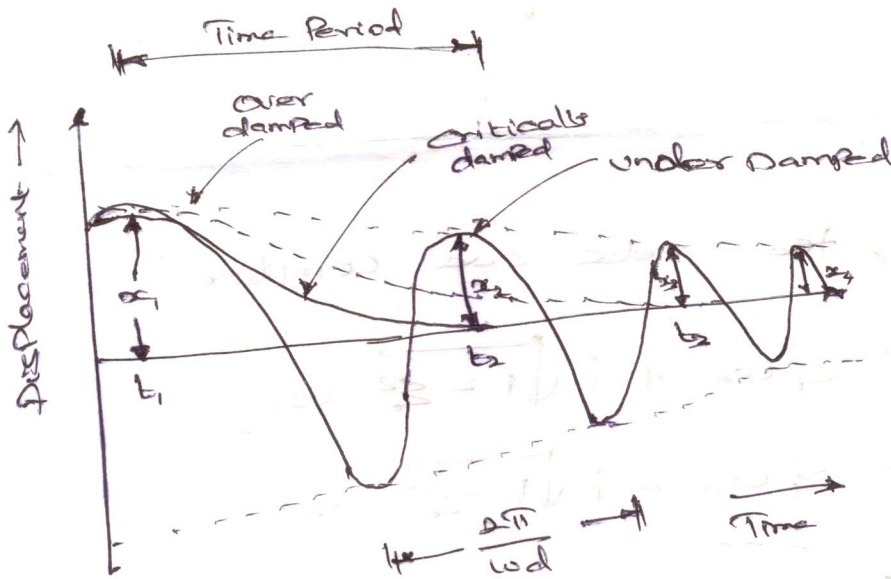 Time Period
Over
damped
Critically
damped
Under Damped
Displacement →
x₁
x₂
x₃
x₄
t₁
t₂
t₂
2π
ωd
Time